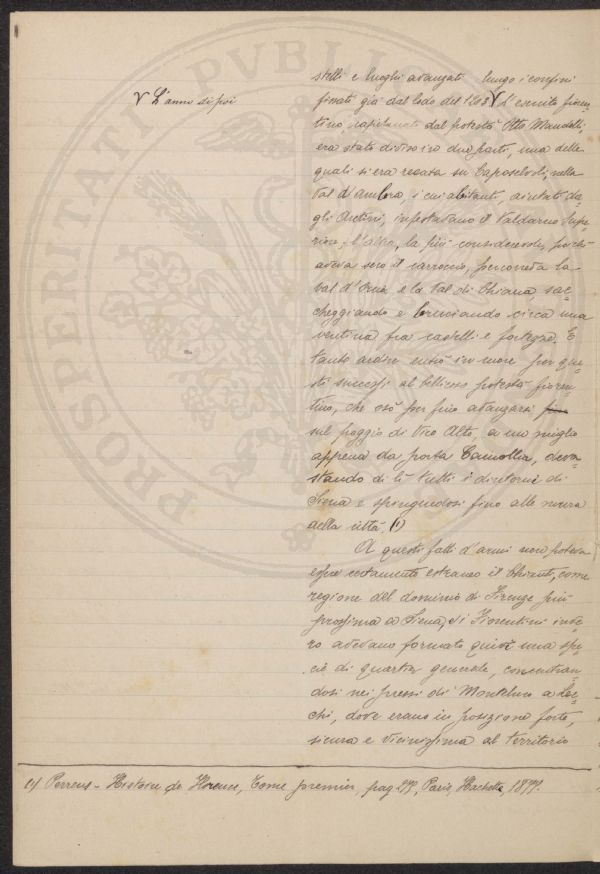 PVBLICAE
PROSPERITATI
V L'anno di poi
stelli e luoghi avanzati lungo i confini
fissati già dal lodo del 1203. V L'esercito fioren-
tino, capitanato dal potestà Otto Mandelli,
era stato diviso in due parti, una delle
quali si era recata su Caposelvoli, nella
Val d'Ambra, i cui abitanti, aiutati da-
gli Aretini, infestavano il Valdarno Supe-
riore; l'altra, la più considerevole, poichè
aveva seco il carroccio, percorreva la
Val d'Orcia e la Val di Chiana, sac-
cheggiando e bruciando circa una
ventina fra castelli e fortezze. E
tanto ardire entrò in cuore per que-
sti successi al bellicoso potestà fioren-
tino, che osò per fino avanzarsi fino
sul poggio di Vico Alto, a un miglio
appena da porta Camollia, deva-
stando di lì tutti i dintorni di
Siena e spingendosi fino alle mura
della città. (1)
A questi fatti d'armi non poteva
esser certamente estraneo il Chianti, come
regione del dominio di Firenze più
prossima a Siena, ed i Fiorentini inve-
ro avevano formato quivi una spe-
cie di quartier generale, concentran-
dosi nei pressi di Monteluco a Lec-
chi, dove erano in posizione forte,
sicura e vicinissima al territorio
(1) Perrens - Histoire de Florence, Tome premier, pag. , Paris, Hachette, 1877.